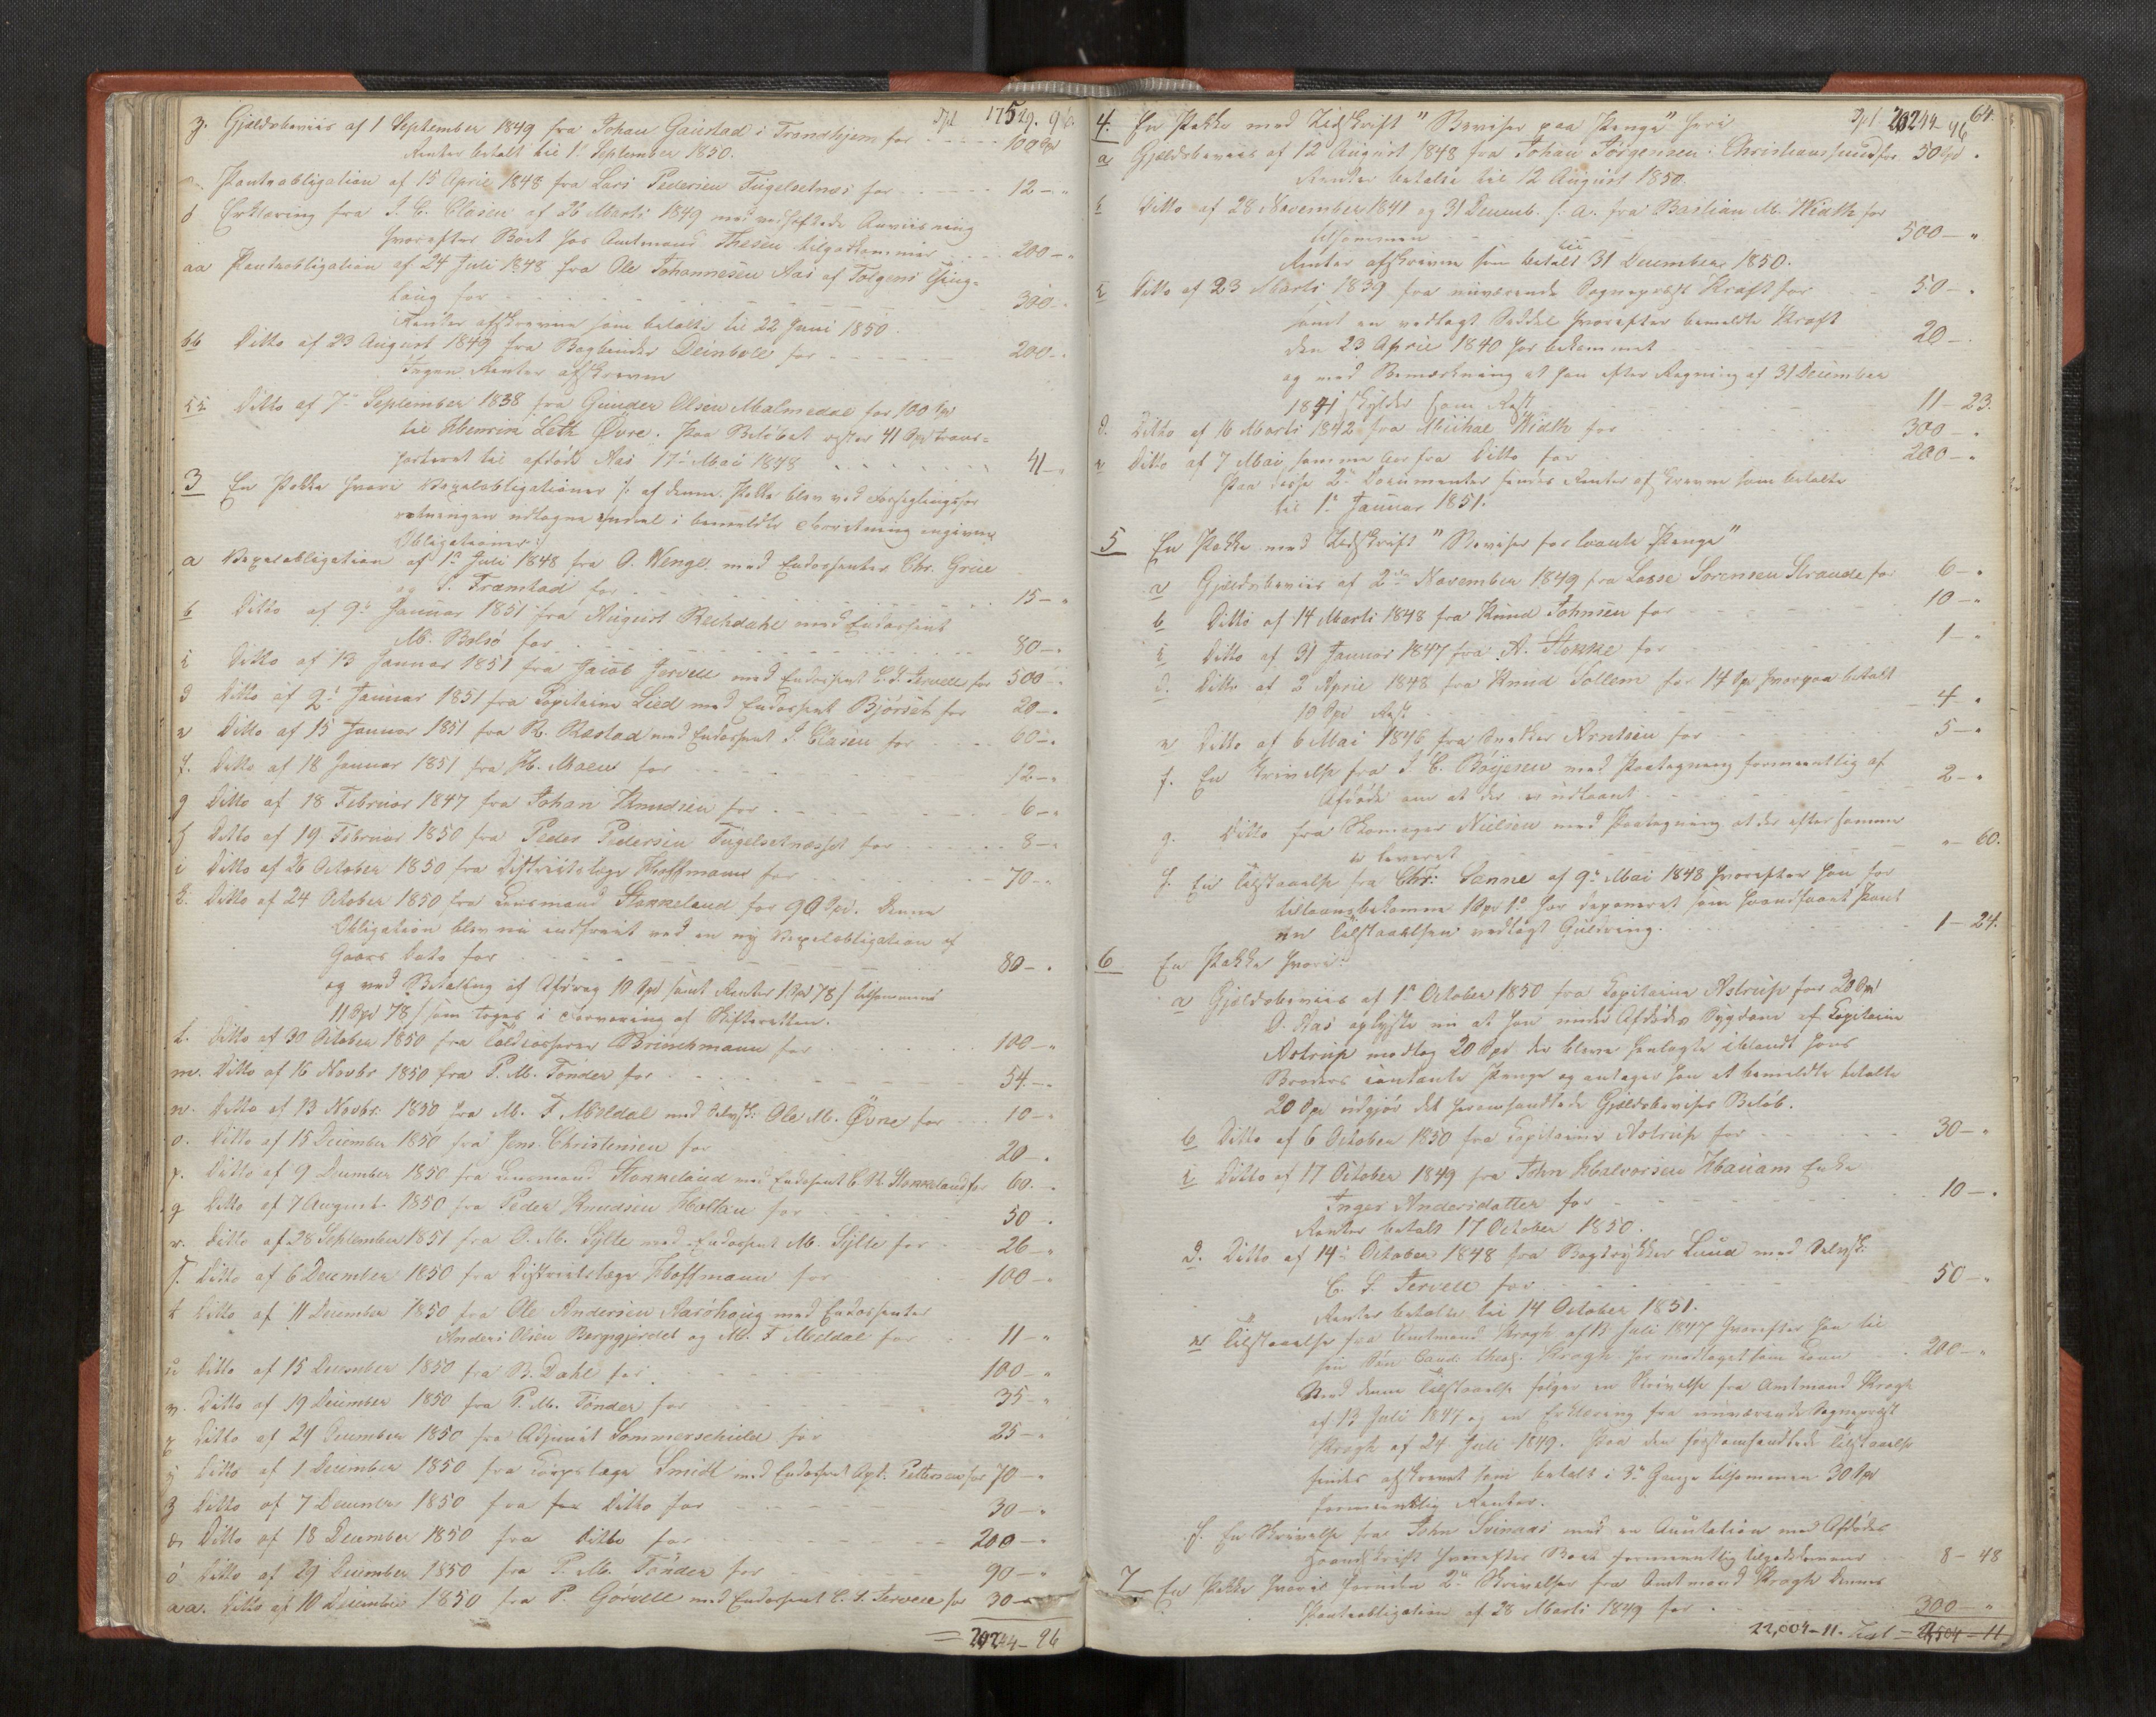 Spd 17529. 96.
z. Gjældsbeviis af 1 September 1849 fra Johan Gaustad i Trondhjem for 100 Spd
Renter betalt til 1 September 1850.
Panteobligation af 15 April 1848 fra Lars Pedersen Fugelsetnæs for 12 - "
ø Erklæring fra J. C. Clasen af 26 Marts 1849 med vedhæftede Anviisning
hvorefter Boet hos Amtmand Thesen tilgodekommer 200 - "
aa Panteobligation af 24 Juli 1848 fra Ole Johannesen Aas af Tolgens Thing-
laug for 300 - "
Renter afskrevne som betalte til 22 Juni 1850.
bb Ditto af 23 August 1849 fra Bogbinder Deinboll for 200 - "
Ingen Renter afskrevne
cc Ditto af 7 September 1838 fra Gunder Olsen Malmedal for 100 Spd
til Henrik Leth Øvre. Paa Beløbet rester 41 Spd trans-
porteret til afdøde Aas 17 Mai 1848 41 - "
3 En Pakke hvori Vexelobligationer /: af denne Pakke blev ved Forseglingsfor
retningen udtagne endeel i bemeldte Forretning angivne
Obligationer :/
a Vexelobligation af 1 Juli 1848 fra O. Wenge med Endossenter Chr. Grüe
og S. Frænstad for 15 - "
b Ditto af 9 Januar 1851 fra August Rechdahl med Endossent
M. Bolsø for 80 - "
c Ditto af 13 Januar 1851 fra Jacob Jervell med Endossent C. S. Jervell for 500 - "
d Ditto af 2 Januar 1851 fra Capitaine Lied med Endossent Bjørset for 20 - "
e Ditto af 15 Januar 1851 fra R. Ræstad med Endossent J. Clasen for 60 - "
f. Ditto af 18 Januar 1851 fra H. Moen for 12 - "
g Ditto af 18 Februar 1847 fra Johan Knudsen for 6 - "
h Ditto af 19 Februar 1850 fra Peder Pedersen Fugelsetnæsset for 8 - "
i Ditto af 26 October 1850 fra Districtslæge Hoffmann for 70 - "
k. Ditto af 24 October 1850 fra Lensmand Stokkeland for 90 Spd. Denne
Obligation blev nu indfriet ved en ny Vexelobligation af
Gaars Dato for 80 - "
og ved Betaling af Afdrag 10 Spd samt Renter 1 Spd 78 s tilsammen
11 Spd 78 s som toges i Forvaring af Skifteretten.
l. Ditto af 30 October 1850 fra Toldcasserer Brinchmann for 100 - "
m. Ditto af 16 Novbr 1850 fra P. M. Tønder for 54 - "
n. Ditto af 13 Novbr. 1850 fra M. F Meldal med Selvsk: Ole M. Øvre for 10 - "
o. Ditto af 15 December 1850 fra Jens Christensen for 20 - "
p. Ditto af 9 December 1850 fra Lensmand Stokkeland med Endossent C R. Stokkeland for 60 - "
q Ditto af 7 August 1850 fra Peder Knudsen Holtan for 50 - "
r. Ditto af 28 September 1851 fra O. M. Sylte med Endossent M. Sylte for 26 - "
s. Ditto af 6 December 1850 fra Districtslæge Hoffmann for 100 - "
t Ditto af 11 December 1850 fra Ole Andersen Aarøhoug med Endossenter
Anders Olsen Bergsgjerdet og M. F Meldal for 11 - "
u Ditto af 15 December 1850 fra B. Dahl for 100 - "
v. Ditto af 19 December 1850 fra P. M. Tønder for 35 - "
x Ditto af 24 December 1850 fra Adjunct Sommerschield for 25 - "
y Ditto af 1 December 1850 fra Corpslæge Smidt med Endossent Apt. Pettersen for 70 - "
z Ditto af 7 December 1850 fra Ditto for 30 - "
æ Ditto af 18 December 1850 fra Ditto for 200 - "
ø Ditto af 29 December 1850 fra P. M. Tønder for 90 - "
aa. Ditto af 10 December 1850 fra P. Gørvell med Endossent C. S. Jervell for 30 - "
= 20244 - 96
64.
4. En Pakke med Udskrift "Beviser paa Penge" hvori Spd 20244 - 96
a Gjældsbeviis af 12 August 1848 fra Johan Jørgensen i Christianssund for 50 Spd "
Renter betalte til 12 August 1850.
b Ditto af 28 November 1841 og 31 Decemb. s. A. fra Bastian M. Width for
tilsammen 500 - "
Renter afskrevne som betalt til 31 December 1850.
c Ditto af 23 Marts 1839 fra nuværende Sognepræst Kraft for 50 - "
samt en vedlagt Seddel hvorefter bemeldte Kraft
den 23 April 1840 har bekommet 20 - "
og med Bemærkning at han efter Regning af 31 December
1841 skylder som Rest 11 - 23.
d. Ditto af 16 Marts 1842 fra Michal Width for 300 - "
e Ditto af 7 Mai samme Aar fra Ditto for 200 - "
Paa disse 2 Documenter findes Renter afskrevne som betalte
til 1 Januar 1851.
5 En Pakke med Udskrift "Beviser for laante Penge"
a Gjældsbeviis af 2 November 1849 fra Lasse Sørensen Strande for 6 - "
b Ditto af 14 Marts 1848 fra Knud Johnsen for 10 - "
c Ditto af 31 Januar 1847 fra A. Stokke for 1 - "
d. Ditto af 2 April 1848 fra Knud Sollem for 14 Spd hvorpaa betalt
10 Spd Rest 4 - "
e Ditto af 6 Mai 1846 fra Snekker Arntsen for 5 - "
f. En Skrivelse fra J. C. Bøyesen med Paategning formeentlig af
Afdøde om at der er udlaant 2 - "
g. Ditto fra Skomager Nielsen med Paategning at der efter samme
er leveret " - 60.
h. En Tilstaaelse fra Chr: Sanne af 9 Mai 1848 hvorefter han for
tillaansbekomne 1 Spd 1 har deponeret som haandfaaet Pant
en Tilstaaelsen vedlagt Guldring. 1 - 24.
6 En Pakke hvori:
a Gjældsbeviis af 1 October 1850 fra Capitaine Astrup for 20 Spd
O. Aas oplyste nu at han under Afdødes Sygdom af Capitaine
Astrup modtog 20 Spd der bleve henlagte iblandt hans
Broders contante Penge og antager han at bemeldte betalte
20 Spd udgjør det heromhandlede Gjældsbevises Beløb.
b Ditto af 6 October 1850 fra Capitaine Astrup for 30 - "
c Ditto af 17 October 1849 fra John Halvorsen Hauams Enke
Inger Andersdatter for 10 - "
Renter betalt 17 October 1850.
d. Ditto af 14 October 1848 fra Bogtrykker Lund med Selvsk:
C. S. Jervell for 50 - "
Renter betalte til 14 October 1851.
e Tilstaaelse fra Amtmand Krogh af 13 Juli 1847 hvorefter han til
sin Søn Cand: theol. Krogh har modtaget som Laan 200 - "
Med denne Tilstaaelse følger en Skrivelse fra Amtmand Krogh
af 13 Juli 1847 og en Erklæring fra nuværende Sognepræst
Krogh af 24 Juli 1849. Paa den førstomhandlede Tilstaaelse
findes afskrevet som betalt i 3 Gange tilsammen 30 Spd
formeentlig Renter.
f. En Skrivelse fra John Svinaas med en Annotation med Afdødes
Haandskrift hvorefter Boet formeentlig tilgodekommer 8 - 48
7 En Pakke hvori foruden 2 Skrivelser fra Amtmand Krogh dennes
Panteobligation af 28 Marts 1849 for 300 - "
22,004 - 11.